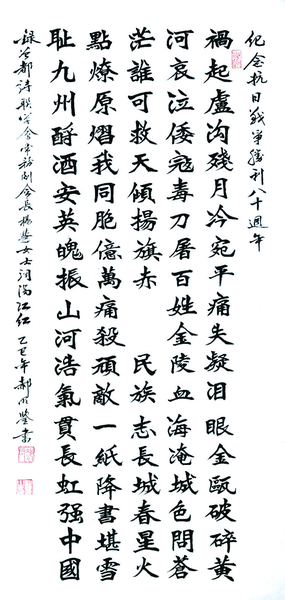 紀念抗日戰爭勝利八十週年
禍起盧沟殘月冷宛平痛失凝泪眼金甌破碎黃
河哀泣倭寇毒刀屠百姓金陵血海淹城色問蒼
茫誰可救天傾揚旗赤 民族志長城春星火
點燎原熠我同胞億萬痛殺頑敵一紙降書堪雪
耻九州酹酒安英魄振山河浩氣貫長虹强中國
錄都詩聯學會常務副會長楊慧女士詞滿江紅 乙巳年郝明鑒書